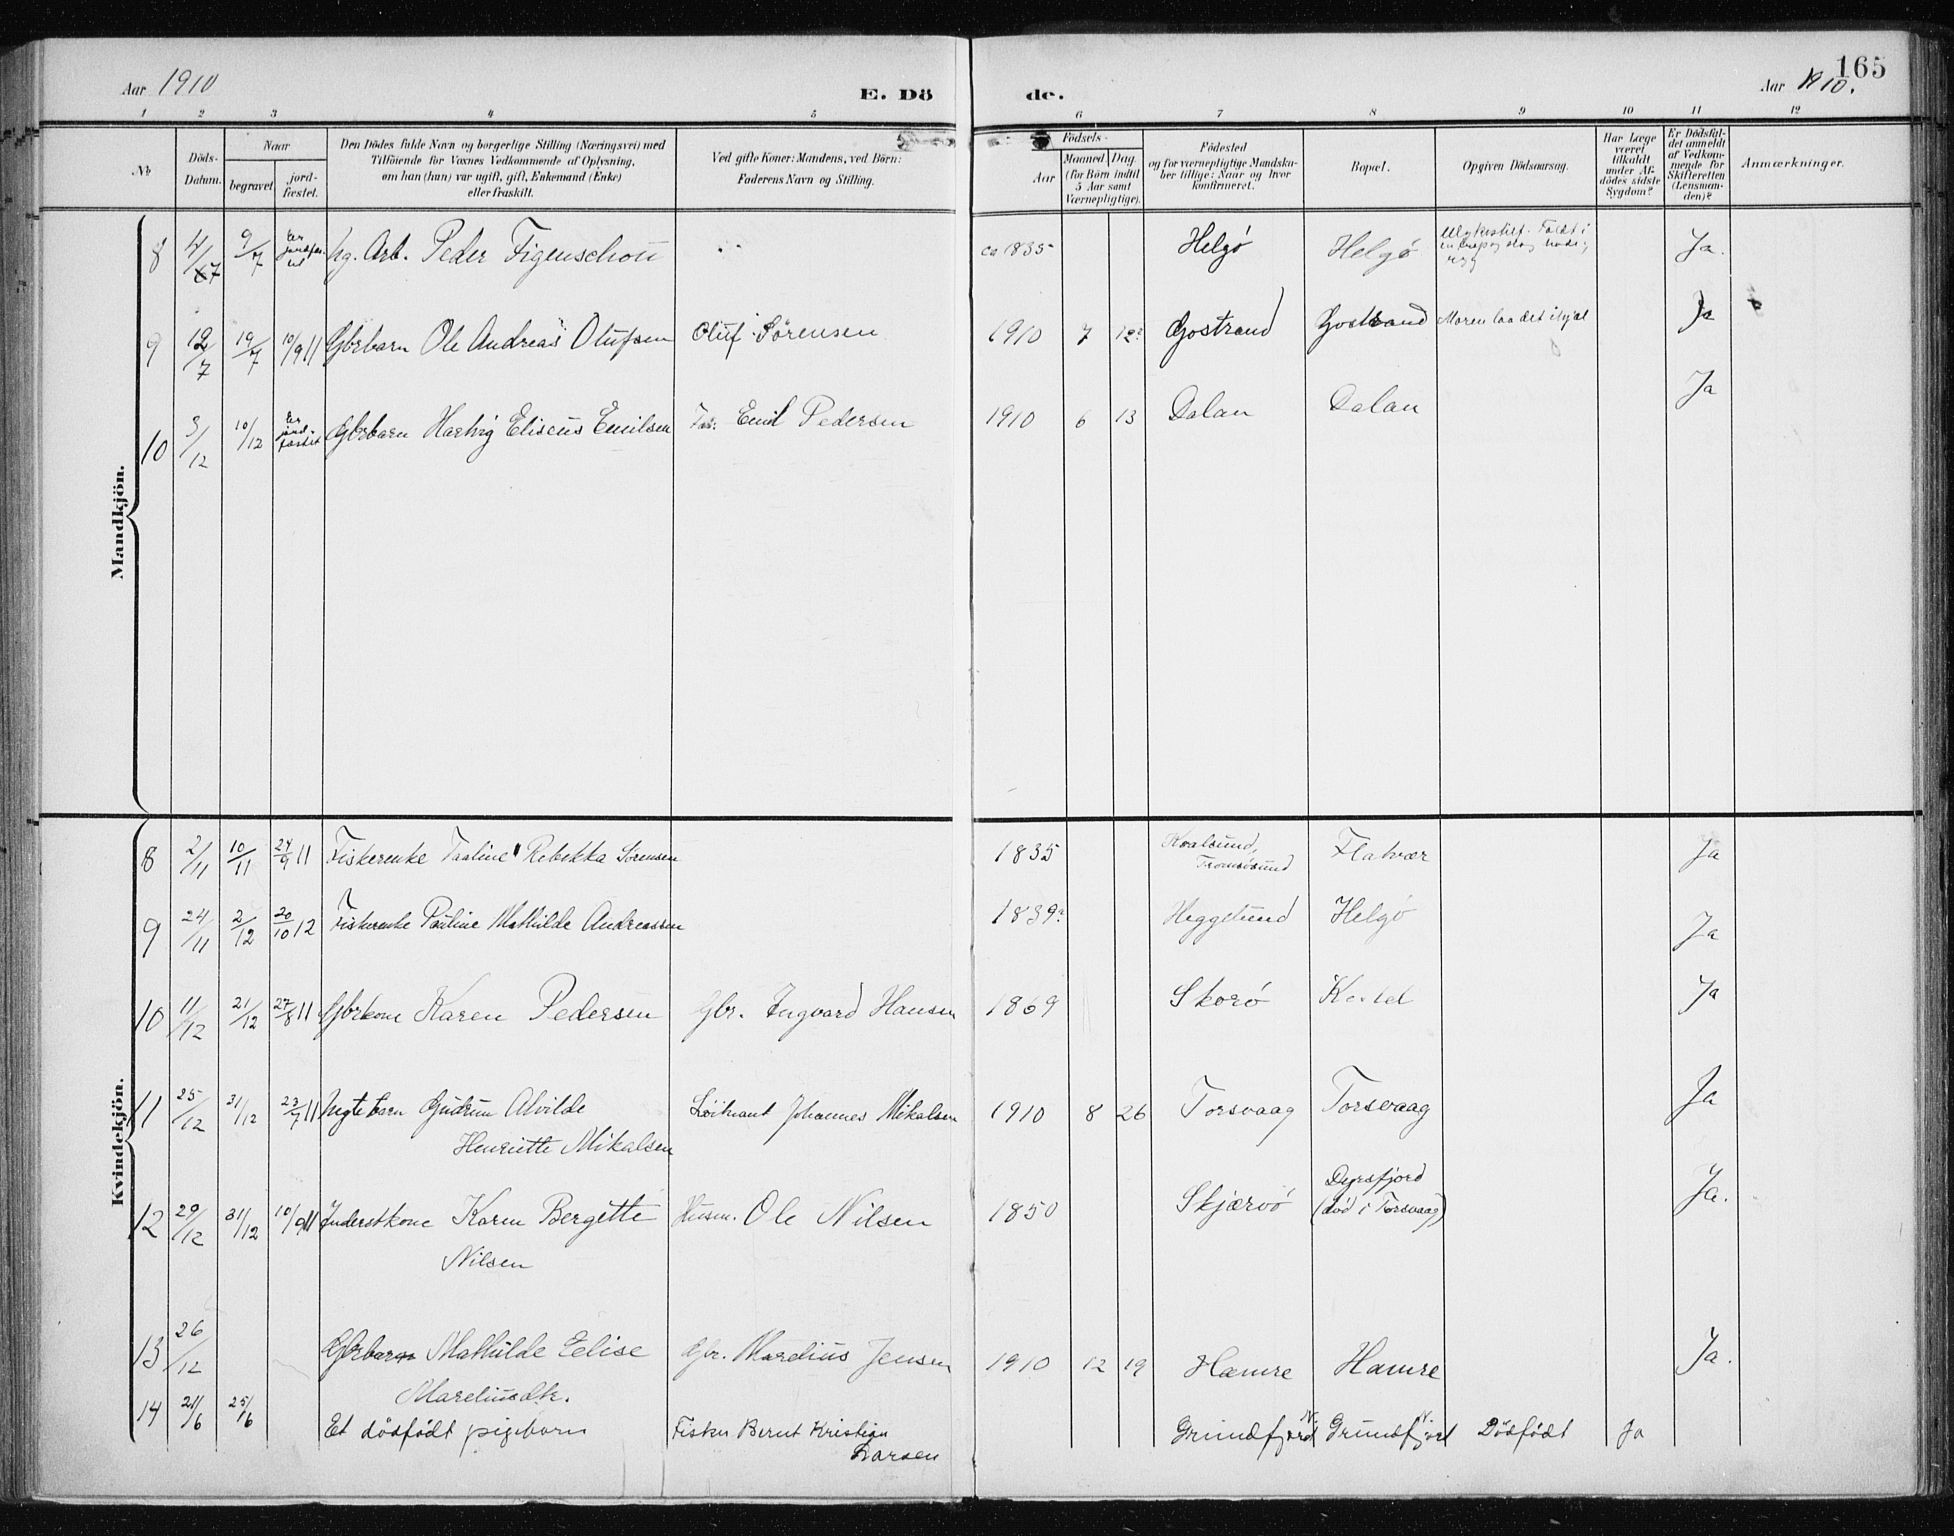 Aar 1910
E. Dö
de.
165
Aar 1910.
1 2 3 4 5 6 7 8 9 10 11 12
No
Döds-
Datum.
Naar
begravet
jord-
fæstet.
Den Dödes fulde Navn og borgerlige Stilling (Næringsvei) med
Tilföiende for Voxnes Vedkommende af Oplysning,
om han (hun) var ugift, gift, Enkemand (Enke)
eller fraskilt.
Ved gifte Koner: Mandens, ved Börn:
Faderens Navn og Stilling.
Födsels-
Aar
Maaned Dag.
(for Börn indtil
5 Aar samt
Værnepligtige).
Födested
og for værnepligtige Mandska-
ber tillige: Naar og hvor
konfirmeret.
Bopæl.
Opgiven Dödsaarsag.
Har Læge
været
tilkaldt
under Af-
dödes sidste
Sygdom?
Er Dödsfal-
det anmeldt
af Vedkom-
mende for
Skifteretten
(Lensman-
den)?
Anmærkninger.
Mandkjön.
8 4/7 9/7 Er jordfæstet Ug. Arb. Peder Figenschou ca 1835 Helgö Helgö Ulykkestilf. Faldt i Ja.
9 12/7 19/7 10/9 11 Gbrbarn Ole Andreas Olufsen Oluf Sörensen 1910 7 12? Gostrand Gostrand Moren laa det ihjæl Ja
10 3/12 10/12 Er jordfæstet Gbrbarn Hartvig Eliseus Emilsen Far: Emil Pedersen 1910 6 13 Dalan Dalan Ja
Kvindekjön.
8 2/11 10/11 24/9 11 Fiskerenke Taaline Rebekka Sörensen 1835 Kvalsund,
Tromsösund Flatvær Ja
9 24/11 2/12 20/10 12 Fiskerenke Pauline Mathilde Andreassen 1839? Heggelund Helgö Ja
10 11/12 21/12 27/8 11 Gbrkone Karen Pedersen Gbr. Ingvard Hansen 1869 Skorö Ja
11 25/12 31/12 23/7 11 Ægtebarn Gudrun Alvilde
Henriette Mikalsen Löitnant Johannes Mikalsen 1910 8 26 Torsvaag Torsvaag Ja
12 29/12 31/12 10/9 11 Inderstkone Karen Bergitte
Nilsen Husm. Ole Nilsen 1850 Skjærvö Dyrsfjord
(död i Torsvaag) Ja.
13 26/12 Gbrbarn Mathilde Eelise
Mareliusdtr. Gbr. Marelius Jensen 1910 12 19 Hamre Hamre Ja.
14 21/6 25/6 Et dödfödt pigebarn Fisker Bernt Kristian
Larsen Grundfjord N. Grundfjord N. Dödfödt Ja